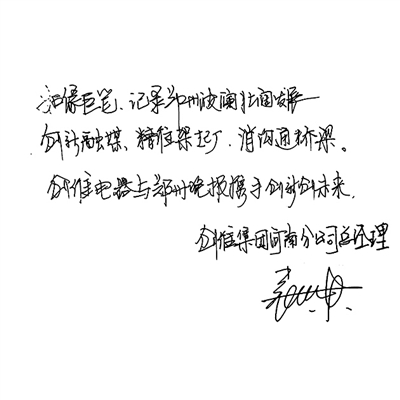 如椽巨笔、记录郑州波澜壮阔发展
创新融媒、精准架起厂、消沟通桥梁。
创维电器与郑州晚报携手创新创未来.
创维集团河南分公司总经理